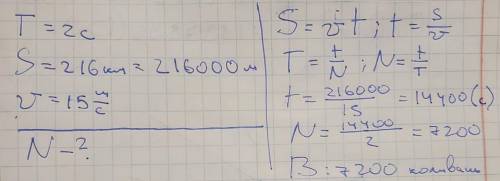 T = 2c
S = 216 км = 216000 м
v = 15 м/с
N - ?
S = vt ; t = S/v
T = t/N ; N = t/T
t = 216000/15 = 14400 (с)
N = 14400/2 = 7200
В: 7200 коливань